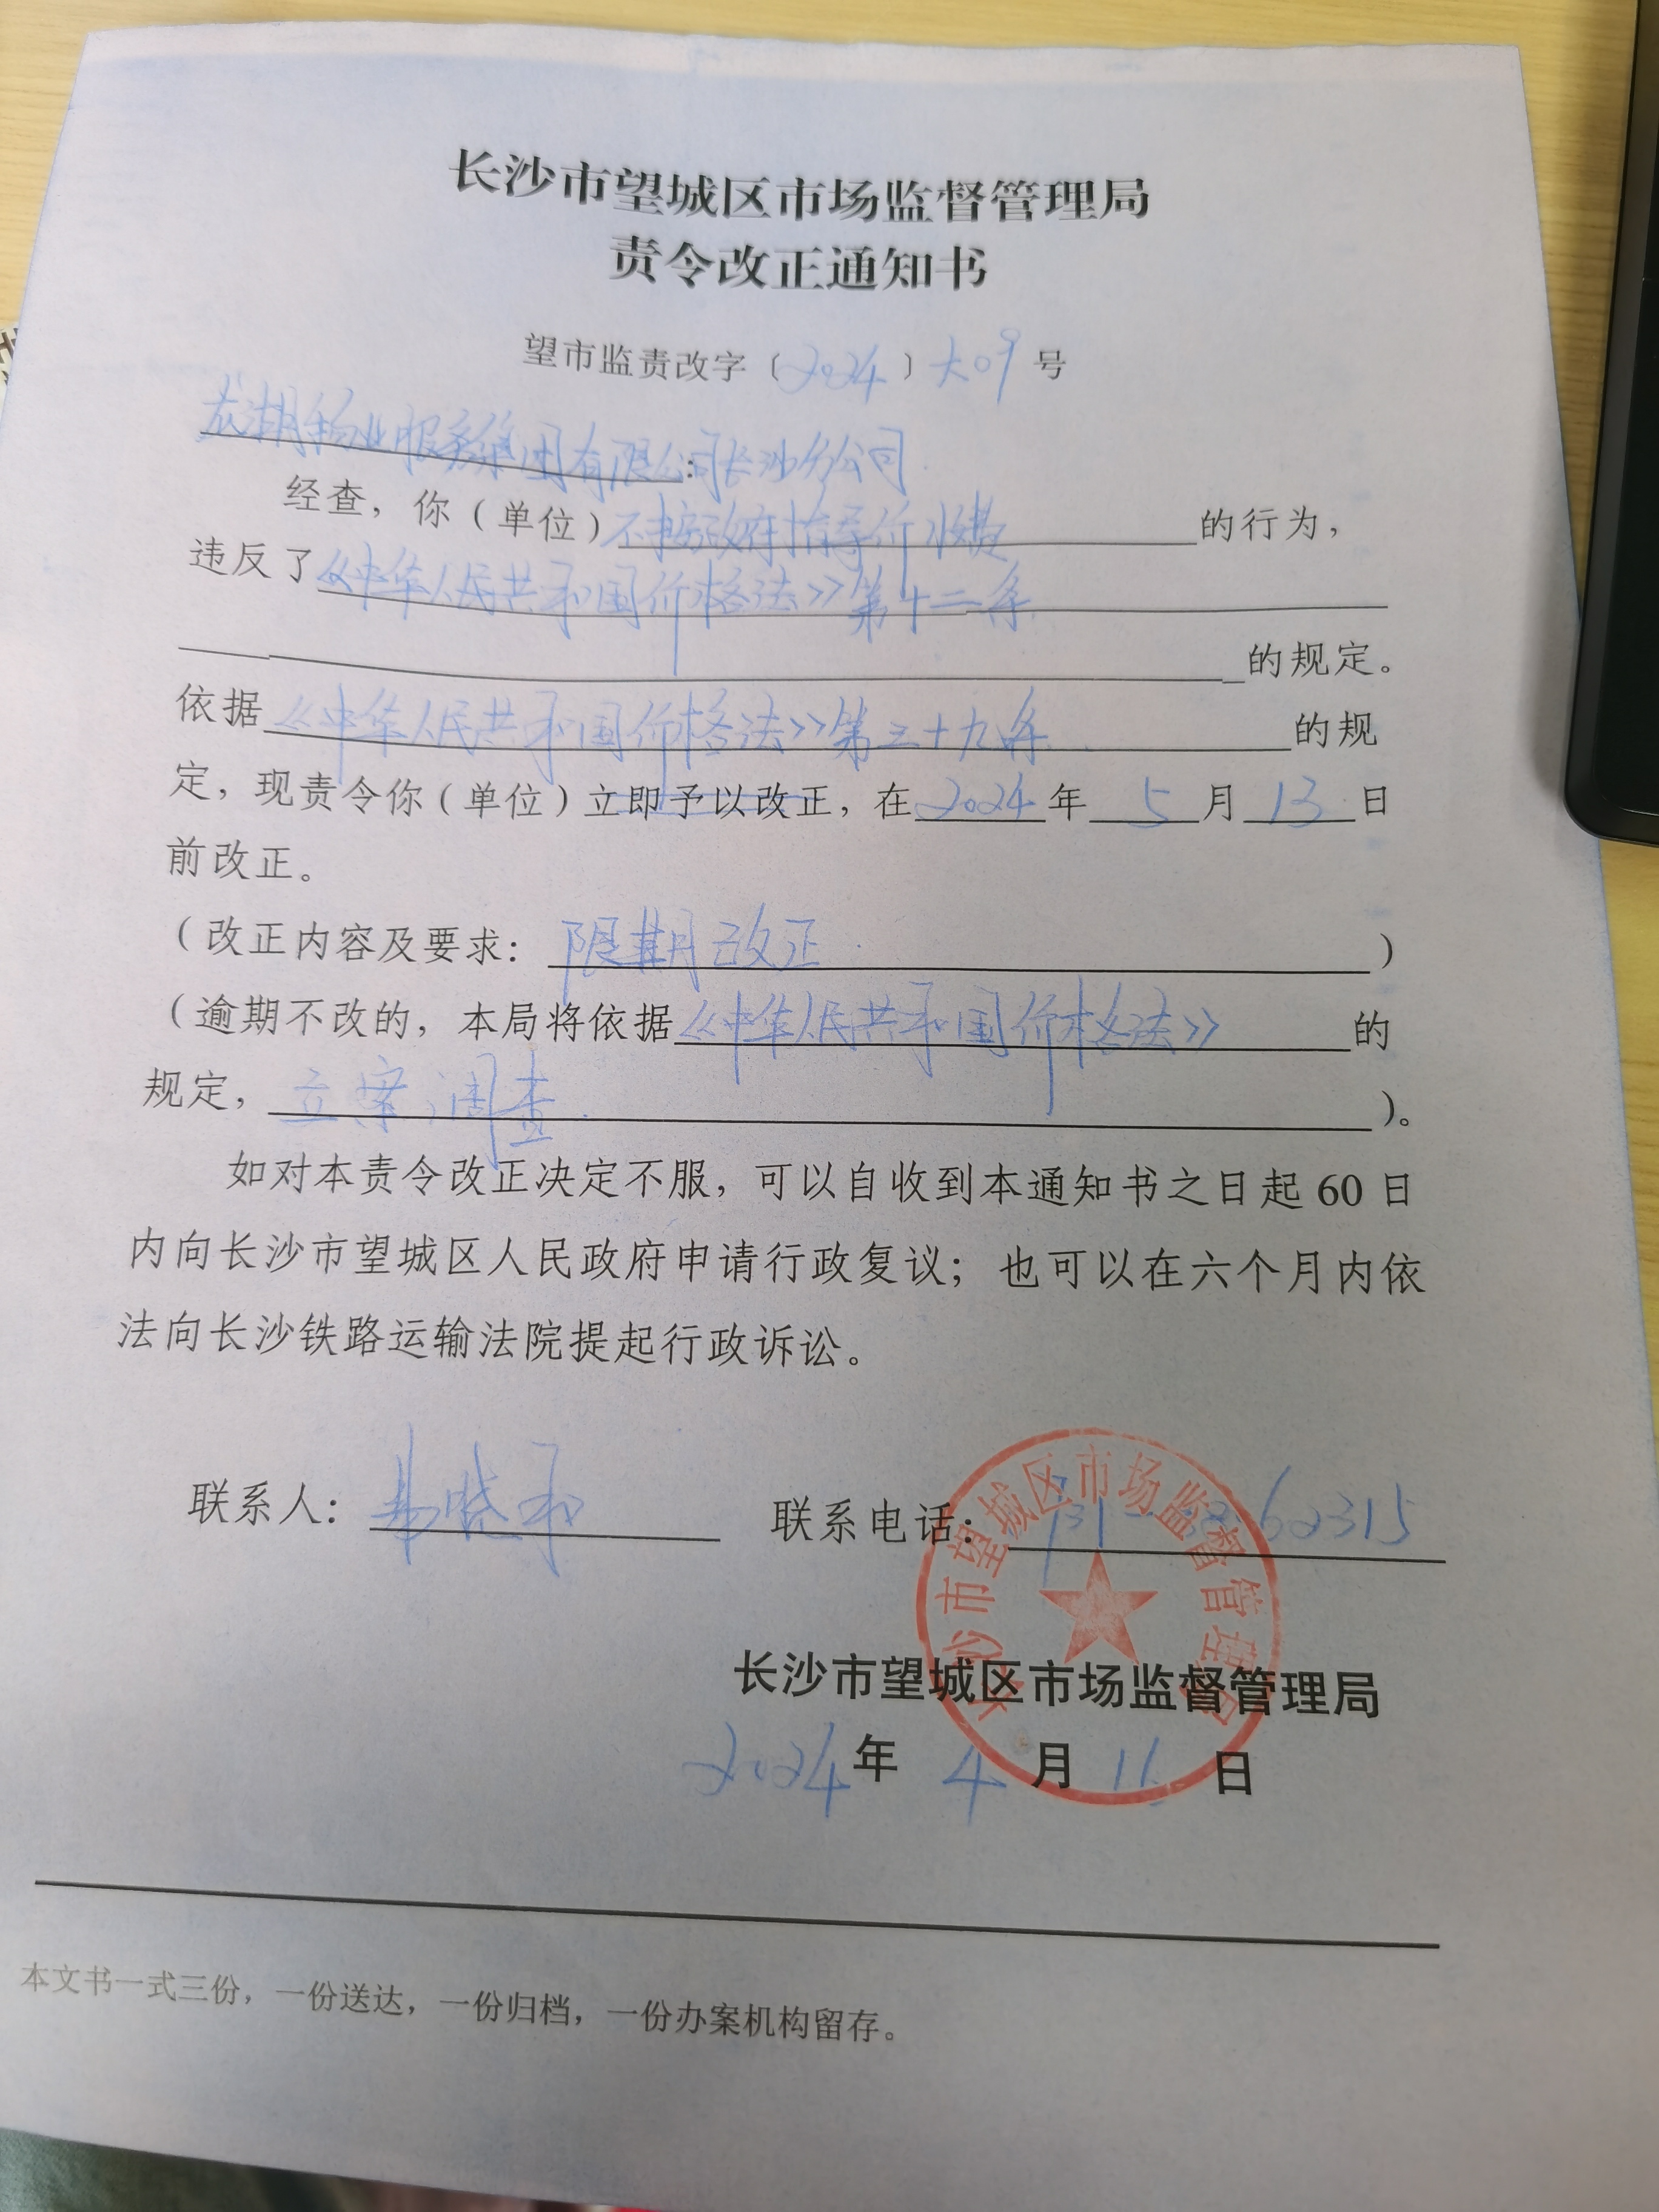 长沙市望城区市场监督管理局
责令改正通知书
望市监责改字〔2024〕大09号
龙湖物业服务集团有限公司长沙分公司:
经查，你（单位）不按政府指导价收费的行为，
违反了《中华人民共和国价格法》第十二条
的规定。
依据《中华人民共和国价格法》第三十九条的规
定，现责令你（单位）立即予以改正，在2024年5月13日
前改正。
（改正内容及要求：限期改正）
（逾期不改的，本局将依据《中华人民共和国价格法》的
规定，立案调查）。
如对本责令改正决定不服，可以自收到本通知书之日起60日
内向长沙市望城区人民政府申请行政复议；也可以在六个月内依
法向长沙铁路运输法院提起行政诉讼。
联系人： 联系电话：
长沙市望城区市场监督管理局
长沙市望城区市场监督管理局
2024年4月 日
本文书一式三份，一份送达，一份归档，一份办案机构留存。